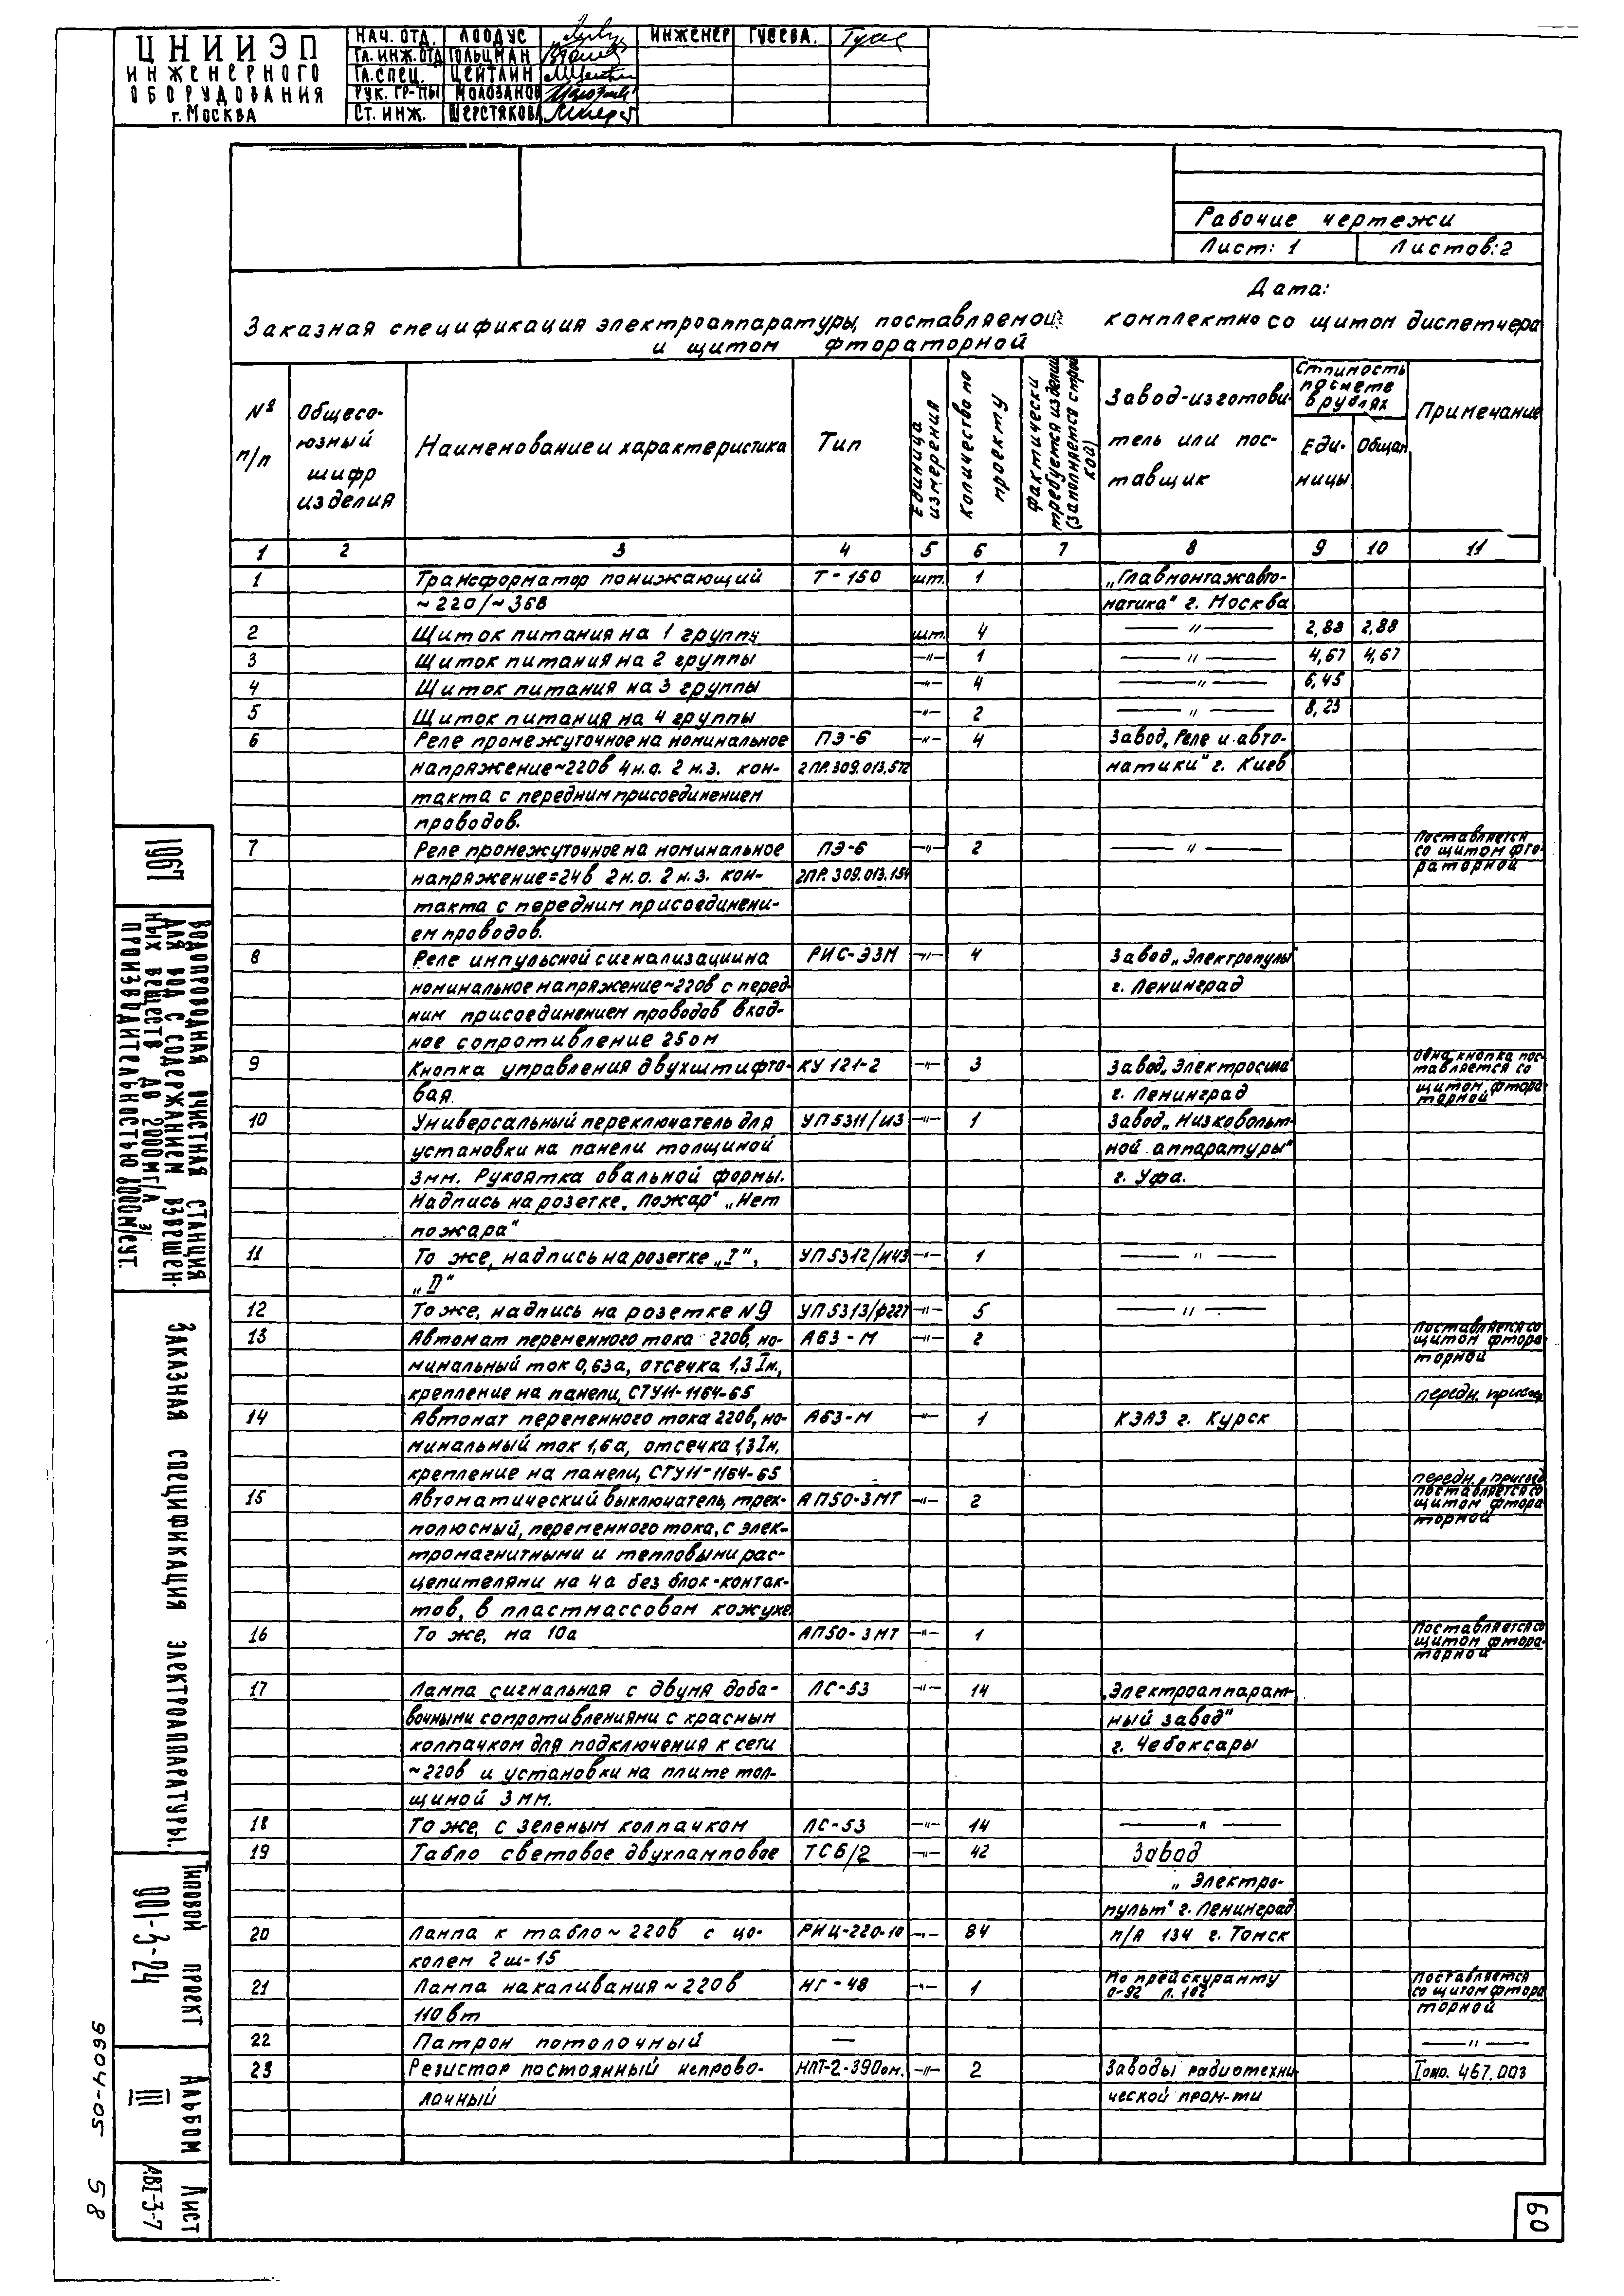 ЦНИИЭП
ИНЖЕНЕРНОГО
ОБОРУДОВАНИЯ
г. МОСКВА
НАЧ. ОТД. ЛООДУС ИНЖЕНЕР ГУСЕВА.
ГЛ. ИНЖ. ОТД ГОЛЬЦМАН
ГЛ. СПЕЦ. ЦЕЙТЛИН
РУК. ГР-ПЫ МОЛОЗАНОВ
СТ. ИНЖ. ШЕРСТЯКОВА
Рабочие чертежи
Лист: 1 Листов: 2
Дата:
Заказная спецификация электроаппаратуры, поставляемой комплектно со щитом диспетчера
и щитом фтораторной
№ п/п
Общесоюзный шифр изделия
Наименование и характеристика
Тип
Единица измерения
Количество по проекту
Фактически требуется изделий (заполняется стройкой)
Завод-изготовитель или поставщик
Стоимость по смете в рублях
Единицы
Общая
Примечание
1 2 3 4 5 6 7 8 9 10 11
1 Трансформатор понижающий Т-150 шт. 1 „Главмонтажавто-
~220/~36В матика" г. Москва
2 Щиток питания на 1 группу шт. 4 —„— 2,88 2,88
3 Щиток питания на 2 группы —„— 1 —„— 4,67 4,67
4 Щиток питания на 3 группы —„— 4 —„— 6,45
5 Щиток питания на 4 группы —„— 2 —„— 8,23
6 Реле промежуточное на номинальное ПЭ-6 —„— 4 Завод „Реле и авто-
напряжение ~220в 4 н.о. 2 н.з. кон- 2ПР.309.013.572 матики" г. Киев
такта с передним присоединением
проводов.
7 Реле промежуточное на номинальное ПЭ-6 —„— 2 —„— Поставляется со щитом фтораторной
напряжение=24в 2 н.о. 2 н.з. кон- 2ПР.309.013.154
такта с передним присоединени-
ем проводов.
8 Реле импульсной сигнализации на РИС-Э3М —„— 4 Завод „Электропульт"
номинальное напряжение ~220в с перед- г. Ленинград
ним присоединением проводов вход-
ное сопротивление 25 ом
9 Кнопка управления двухштифто- КУ 121-2 —„— 3 Завод „Электросила" одна кнопка поставляется со
вая г. Ленинград щитом фтораторной
10 Универсальный переключатель для УП5311/И3 —„— 1 Завод „Низковольт-
установки на панели толщиной ной аппаратуры"
3мм. Рукоятка овальной формы. г. Уфа.
Надпись на розетке „Пожар" „Нет
пожара"
11 То же, надпись на розетке „I", УП5312/И43 —„— 1 —„—
„II"
12 То же, надпись на розетке N9 УП5313/Ф227 —„— 5 —„—
13 Автомат переменного тока 220в, но- А63-М —„— 2 Поставляется со щитом фтораторной
минальный ток 0,63а, отсечка 1,3 Iн,
крепление на панели, СТУ11-1164-65 передн. присоед
14 Автомат переменного тока 220в, но- А63-М —„— 1 КЭАЗ г. Курск
минальный ток 1,6а, отсечка 1,3 Iн,
крепление на панели, СТУ11-1164-65 передн. присоед
15 Автоматический выключатель, трех- АП50-3МТ —„— 2 поставляется со щитом фтораторной
полюсный, переменного тока, с элек-
тромагнитными и тепловыми рас-
цепителями на 4а без блок-контак-
тов, в пластмассовом кожухе.
16 То же, на 10а АП50-3МТ —„— 1 Поставляется со щитом фтораторной
17 Лампа сигнальная с двумя доба- ЛС-53 —„— 14 „Электроаппарат-
вочными сопротивлениями с красным ный завод"
колпачком для подключения к сети г. Чебоксары
~220в и установки на плите тол-
щиной 3 мм.
18 То же, с зеленым колпачком ЛС-53 —„— 14 —„—
19 Табло световое двухламповое ТСБ/2 —„— 42 Завод
„Электро-
пульт" г. Ленинград
20 Лампа к табло ~220в с цо- РНЦ-220-10 —„— 84 п/я 134 г. Томск
колем 2ш-15
21 Лампа накаливания ~220в НГ-48 —„— 1 По прейскуранту Поставляется со щитом фтораторной
110 вт
22 Патрон потолочный — —„—
23 Резистор постоянный непрово- МЛТ-2-390ом. —„— 2 Заводы радиотехни- 467.003
лочный ческой пром-ти
1967
ВОДОПРОВОДНАЯ ОЧИСТНАЯ СТАНЦИЯ
ДЛЯ ВОД С СОДЕРЖАНИЕМ ВЗВЕШЕН-
НЫХ ВЕЩЕСТВ ДО 2000МГ/Л
ПРОИЗВОДИТЕЛЬНОСТЬЮ 8000М³/СУТ.
ЗАКАЗНАЯ СПЕЦИФИКАЦИЯ ЭЛЕКТРОАППАРАТУРЫ.
ТИПОВОЙ ПРОЕКТ
901-3-24
АЛЬБОМ
III
ЛИСТ
АВI-3-7
9604-05 58
60